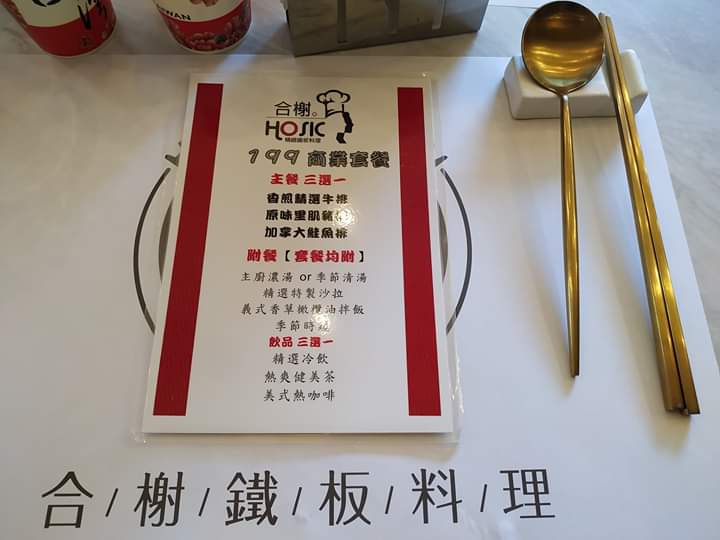 WAN
合榭。
HOSIC
精緻鐵板料理
199 商業套餐
主餐 三選一
香煎精選牛排
原味里肌豬排
加拿大鮭魚排
附餐【套餐均附】
主廚濃湯 or 季節清湯
精選特製沙拉
義式香草橄欖油拌飯
季節時蔬
飲品 三選一
精選冷飲
熱爽健美茶
美式熱咖啡
合/榭/鐵/板/料/理